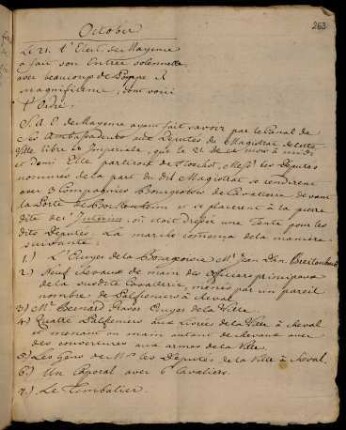 October
263
Le 21. l'Elect. de Mayence
a fait son Entrée solennelle
avec beaucoup de Pompe &
magnificence, dont voici
l'Ordre.
S. A. E. de Mayence ayant fait savoir par le Canal de
Ses Ambassadeurs aux Deputés du Magistrat de cette
Ville libre & Imperiale, que le 21 de ce mois à midi
et demi Elle partiroit de Hoechst, Mess. les Deputés
nommés de la part du dit Magistrat se rendirent
avec 3 Compagnies Bourgeoises de Cavallerie, devant
la Porte de Bockenheim et se placerent à la pierre
dite des, où étoit dressé une Tente pour les
dits Deputés. La marche commença de la maniere
suivante:
1) L'Ecuyer de la Bourgeoisie Mr. Jean Dan.
2) Neuf Chevaux de main des Officiers principaux
de la susdite Cavallerie, menés par un pareil
nombre de Palfreniers à cheval
3) Mr. Bernard Ecuyer de la Ville
4) Quatre Palfreniers aux livrées de la Ville à cheval
et menant en main autant de chevaux avec
des couvertures aux armes de la Ville
5) Les Gens de Mrs. les Députés de la Ville à cheval
6) Un Caporal avec 6 Cavaliers.
7) Le Timbalier